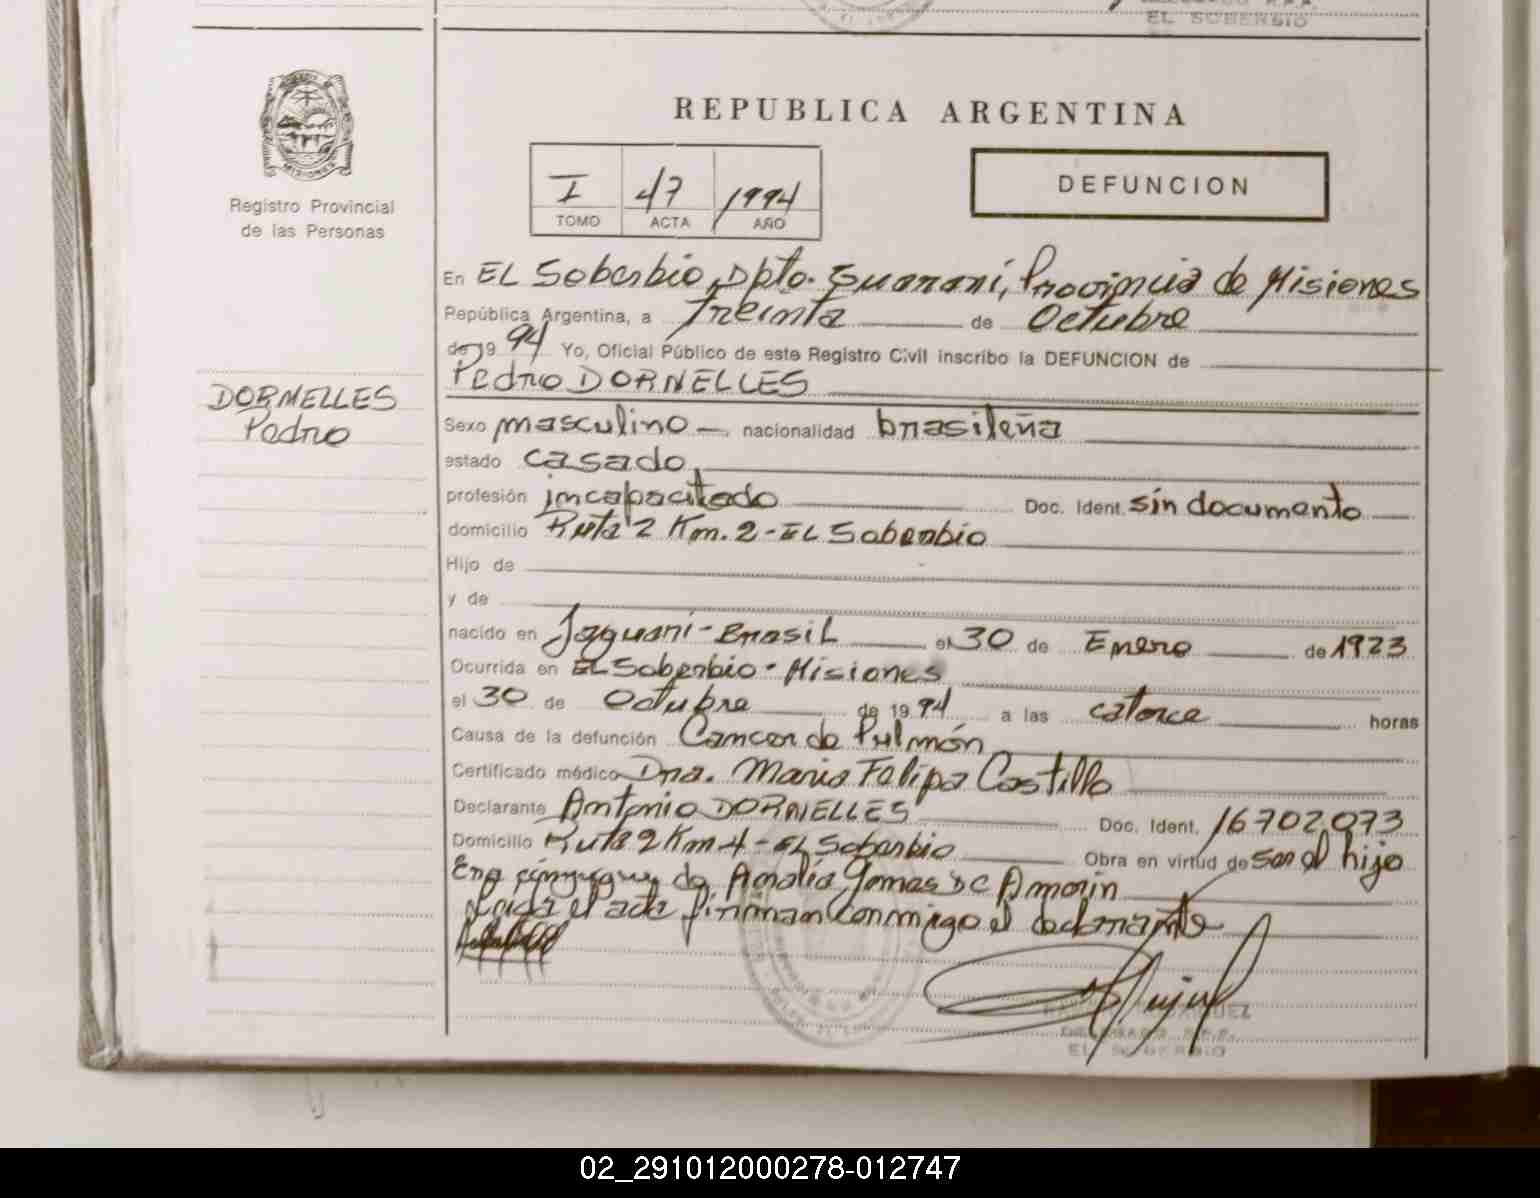 EL SOBERBIO
REPUBLICA ARGENTINA
I 47 1994
TOMO ACTA AÑO
DEFUNCION
MISIONES
Registro Provincial
de las Personas
En EL Soberbio, Dpto. Guaraní, Provincia de Misiones
República Argentina, a Treinta de Octubre
de 19 94 Yo, Oficial Público de este Registro Civil inscribo la DEFUNCION de
Pedro DORNELLES
DORNELLES
Pedro
Sexo masculino nacionalidad brasileña
estado casado
profesión incapacitado Doc. Ident. sin documento
domicilio Ruta 2 Km. 2 - EL Soberbio
Hijo de
y de
nacido en Jaguari - Brasil el 30 de Enero de 1923
Ocurrida en EL Soberbio - Misiones
el 30 de Octubre de 19 94 a las catorce horas
Causa de la defunción Cancer de Pulmón
Certificado médico Dra. Maria Felipa Castillo
Declarante Antonio DORNELLES Doc. Ident. 16702073
Domicilio Ruta 2 Km 4 - EL Soberbio Obra en virtud de ser el hijo
Era de Amalia Gomes DE Amorin
Leida el acta firman conmigo el declarante
EL SOBERBIO
02_291012000278-012747